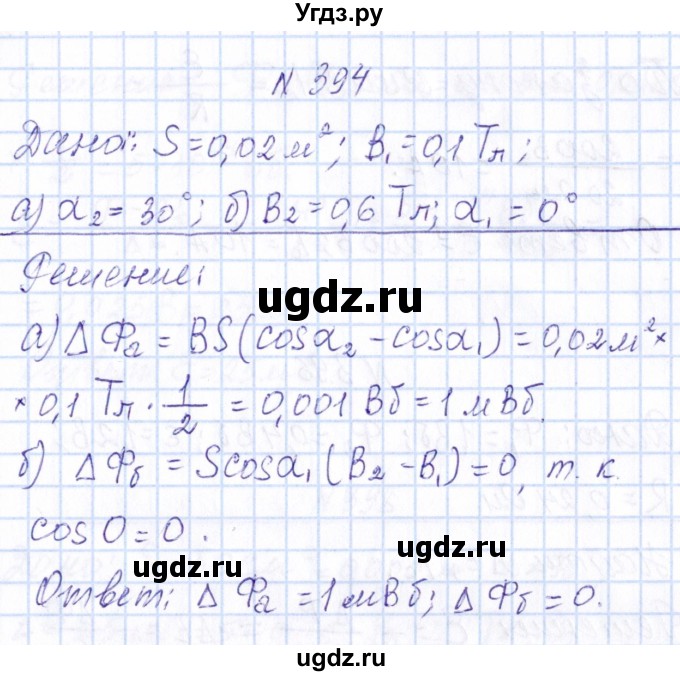 Угдз.ру
N 394
Дано: S=0,02 м²; B₁=0,1 Тл;
а) α₂=30°; б) B₂=0,6 Тл; α₁=0°
Решение:
ugdz.ru
а) Δ Φₐ = BS(cosα₂ - cosα₁) = 0,02м² ×
× 0,1 Тл · 1/2 = 0,001 Вб = 1 мВб.
ugdz.ru
б) Δ Φб = Scosα₁(B₂ - B₁) = 0, т. к.
cos 0 = 0.
ugdz.ru
Ответ: Δ Φₐ = 1мВб; Δ Φб = 0.
ugdz.ru
ugdz.ru